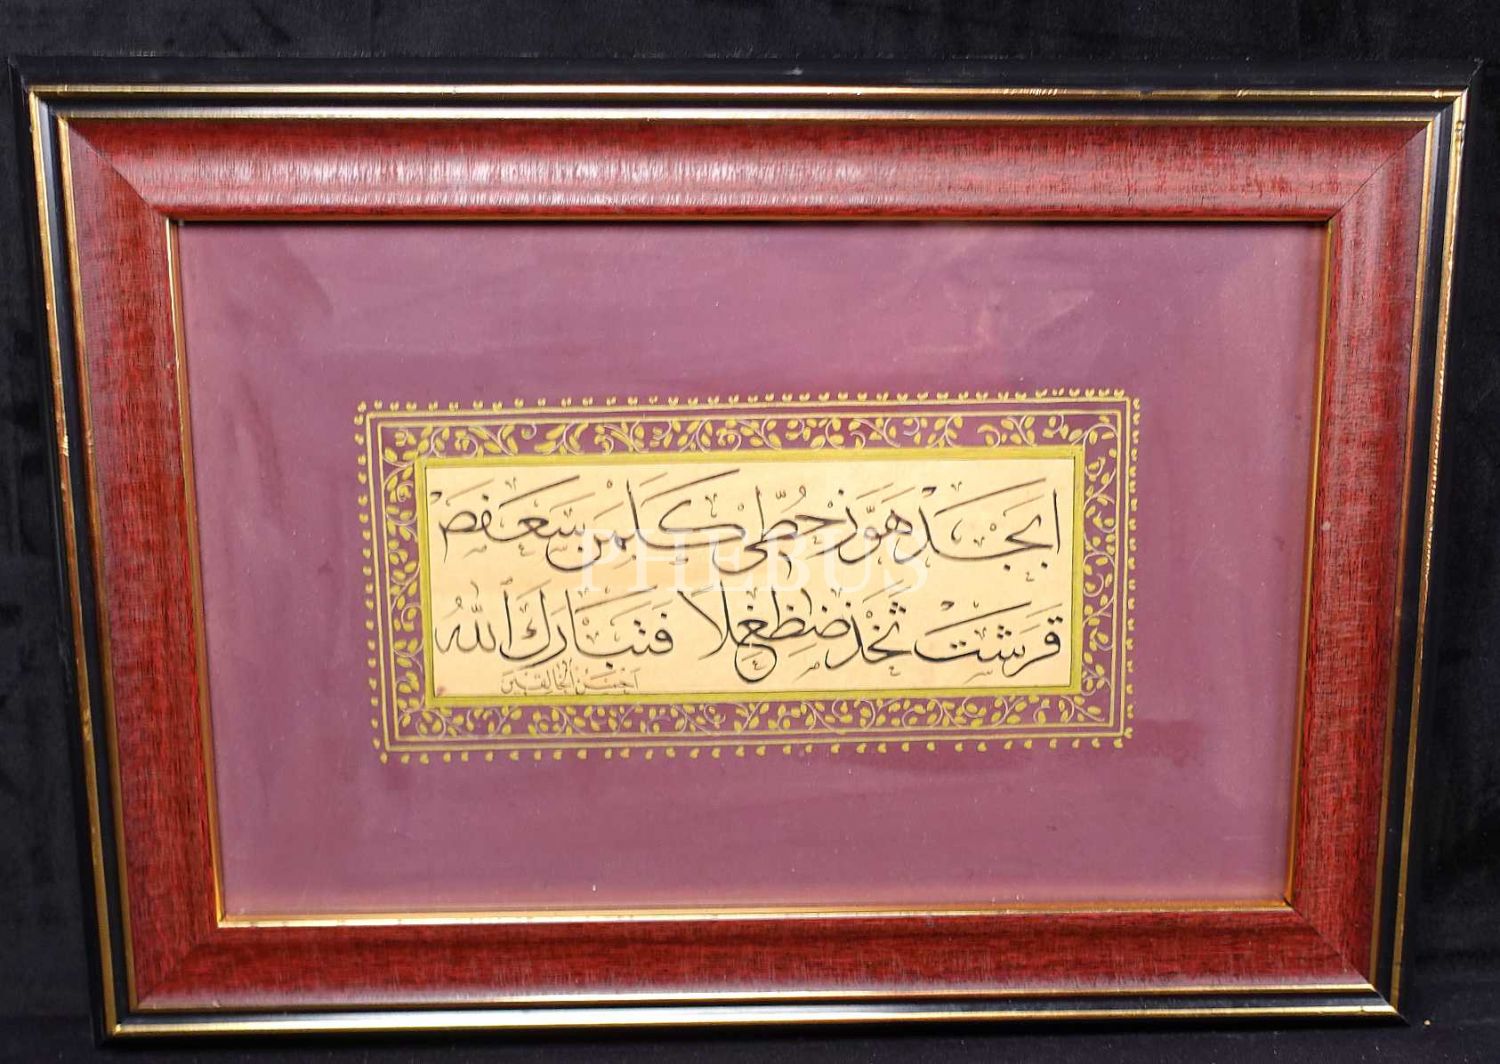 ابجد هوز حطي كلمن سعفص
قرشت ثخذ ضظغلا فتبارك الله
احسن الخالقين
PHEBUS